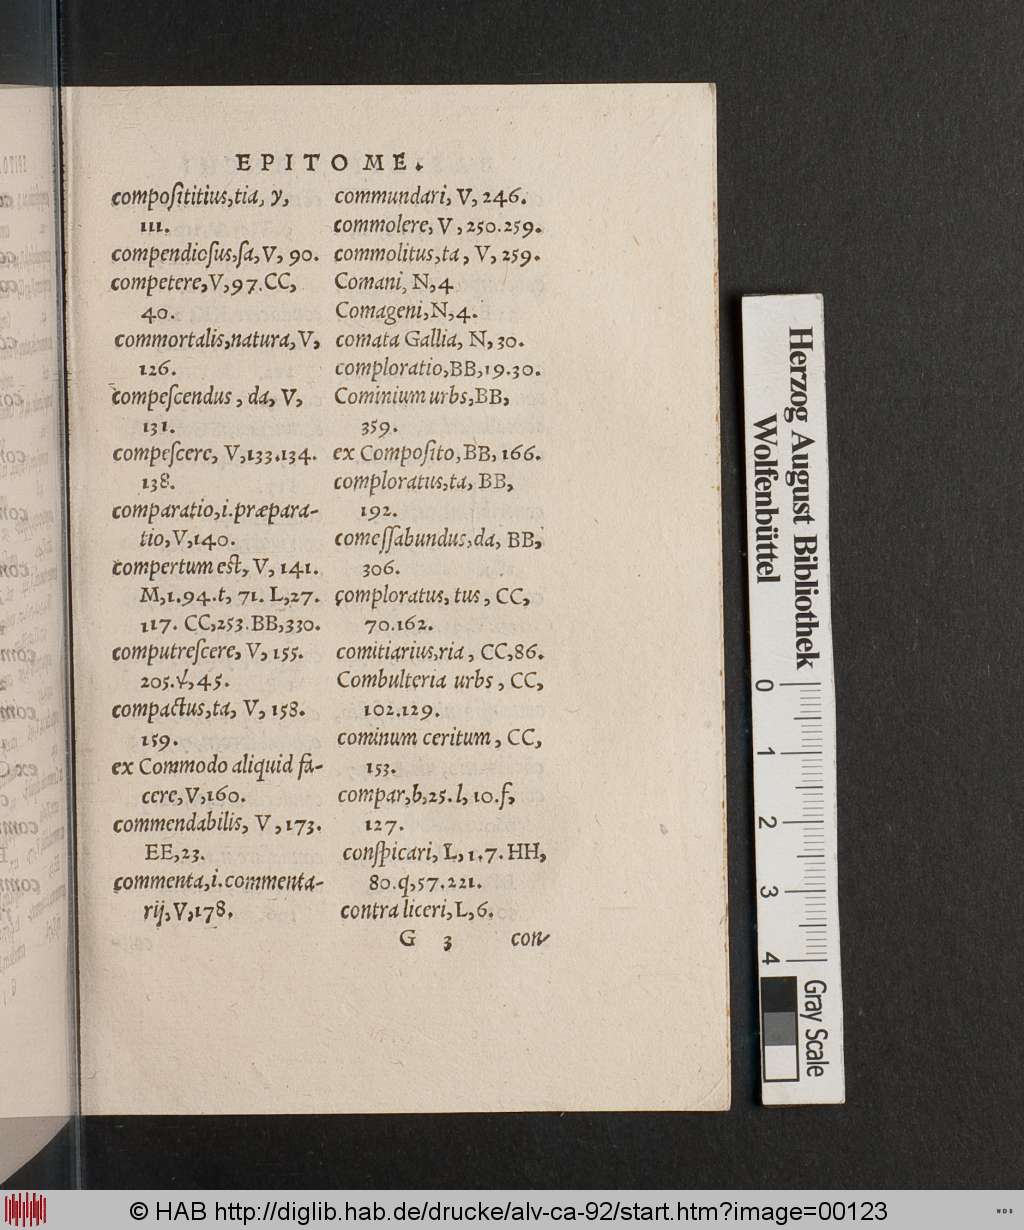 EPITOME.
compoſititius,tia, y,
111.
compendioſus,ſa,V, 90.
competere,V,97.CC,
40.
commortalis,natura,V,
126.
compeſcendus, da, V,
131.
compeſcere, V,133.134.
138.
comparatio,i.præpara-
tio,V,140.
compertum eſt, V, 141.
M,1.94.t, 71. L,27.
117. CC,253.BB,330.
computreſcere, V, 155.
205.Y,45.
compactus,ta, V, 158.
159.
ex Commodo aliquid fa-
cere,V,160.
commendabilis, V, 173.
EE,23.
commenta,i.commenta-
rij,V,178.
commundari, V, 246.
commolere, V, 250.259.
commolitus,ta, V, 259.
Comani, N,4
Comageni,N,4.
comata Gallia, N, 30.
comploratio,BB,19.30.
Cominium urbs,BB,
359.
ex Compoſito,BB, 166.
comploratus,ta, BB,
192.
comeſſabundus,da, BB,
306.
comploratus, tus, CC,
70.162.
comitiarius,ria, CC,86.
Combulteria urbs, CC,
102.129.
cominum ceritum, CC,
153.
compar,b,25.l, 10.f,
127.
conſpicari, L,1.7. HH,
80.q,57.221.
contra liceri,L,6.
G 3 con-
Herzog August Bibliothek
Wolfenbüttel
0 1 2 3 4
Gray Scale
© HAB http://diglib.hab.de/drucke/alv-ca-92/start.htm?image=00123